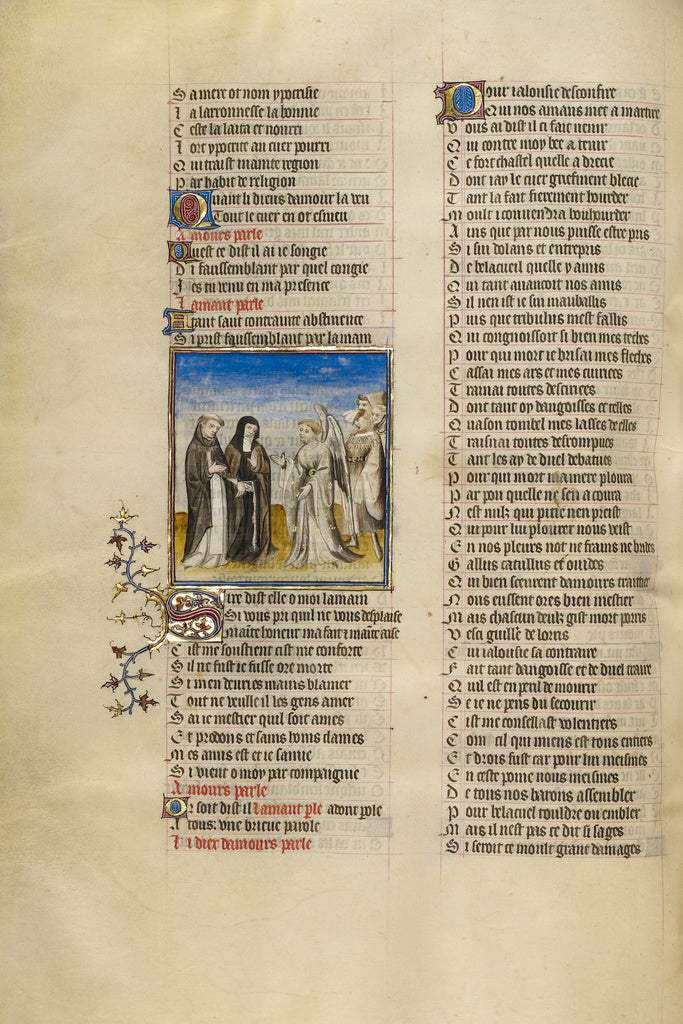 Sa mere ot nom ypocrisie
La larronnesse la honnie
Ceste la laita et nourri
Lort ypocrite au cuer pourri
Qui traist mainte region
Par habit de religion
Quant li dieus damour la veu
Tout le cuer en ot esmeu
Amours parle
Quest ce dist il ai ie songie
Di faussemblant par quel congie
Ies tu venu en ma presence
Lamant parle
Atant saut contrainte abstinence
Si prist faussemblant par la main
Sire dist elle o moi lamain
Si vous pri quil ne vous desplaise
Mainte honeur ma fait et mainte aise
Cist me soustient cist me conforte
Sil ne fust ie fusse ore morte
Si men deuries mains blamer
Tout ne veulle il les gens amer
Sai ie mestier quil soit ames
Et prodons et sains hons clames
Mes amis est et ie samie
Si vient o moy par compaignie
Amours parle
Or soit dist il lamant ple adont pole
A tous vne brieue parole
Li diex damours parle
Pour ialousie desconfire
Qui nos amans met a martire
Vous ai dist il ci fait venir
Qui contre moy bee a tenir
Ce fort chastel quelle a drecie
Dont iay le cuer griefment blecie
Tant la fait fierement hourder
Moult i conuendra bouhourder
Ains que par nous puisse estre pris
Si sui dolans et entrepris
De belacueil quelle y a mis
Qui tant auancoit nos amis
Sil nen ist ie sui maubaillis
Puis que tribulus mest faillis
Qui congnoissoit si bien mes teches
Pour qui mort ie brisai mes fleches
Cassai mes ars et mes cuiries
Trainai toutes descirees
Dont tant oy dangoisses et telles
Quason tombel mes lasses de elles
Traisnai toutes desrompues
Tant les ay de duel debatues
Pour qui mort ma mere ploura
Par pou quelle ne sen acoura
Nest nulz qui pitie nen preist
Qui pour lui plourer nous veist
En nos pleurs not ne frains ne brides
Gallus catullus et ouides
Qui bien seeurent damours traittier
Nous eussent ores bien mestier
Mais chascun deulz gist mort porris
Vesci guille de lorris
Cui ialousie sa contraire
Fait tant dangoisse et de duel traire
Quil est en peril de mourir
Se ie ne pens du secourir
Cist me consellast volentiers
Com cil qui miens est tous entiers
Et drois fust car pour lui meismes
En ceste poine nous meismes
De tous nos barons assembler
Pour belaciel touldre ou embler
Mais il nest pas ce dit si sages
Si seroit ce moult grant damages